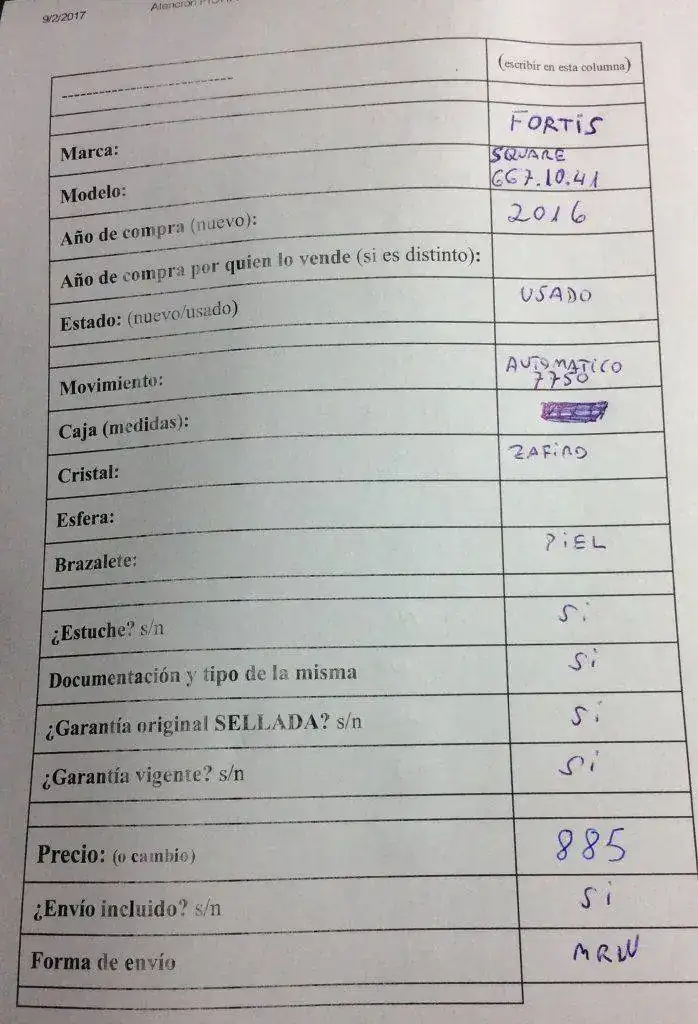 9/2/2017
Atención
(escribir en esta columna)
---------------------------
Marca: FORTIS
Modelo: SQUARE
667.10.41
Año de compra (nuevo): 2016
Año de compra por quien lo vende (si es distinto):
Estado: (nuevo/usado) USADO
Movimiento: AUTOMATICO
7750
Caja (medidas):
Cristal: ZAFIRO
Esfera:
Brazalete: PIEL
¿Estuche? s/n Si
Documentación y tipo de la misma Si
¿Garantía original SELLADA? s/n Si
¿Garantía vigente? s/n Si
Precio: (o cambio) 885
¿Envío incluido? s/n Si
Forma de envío MRW